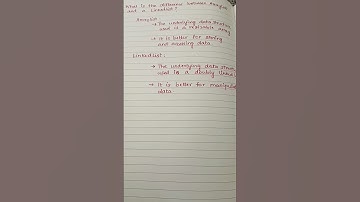 What is the difference between Arraylist
and a LinkedList?
Arraylist
→ The underlying data structure
used is a resizable array
→ It is better for storing
and accessing data.
LinkedList:
→ The underlying data
used is a doubly linked
→ It is better for
data